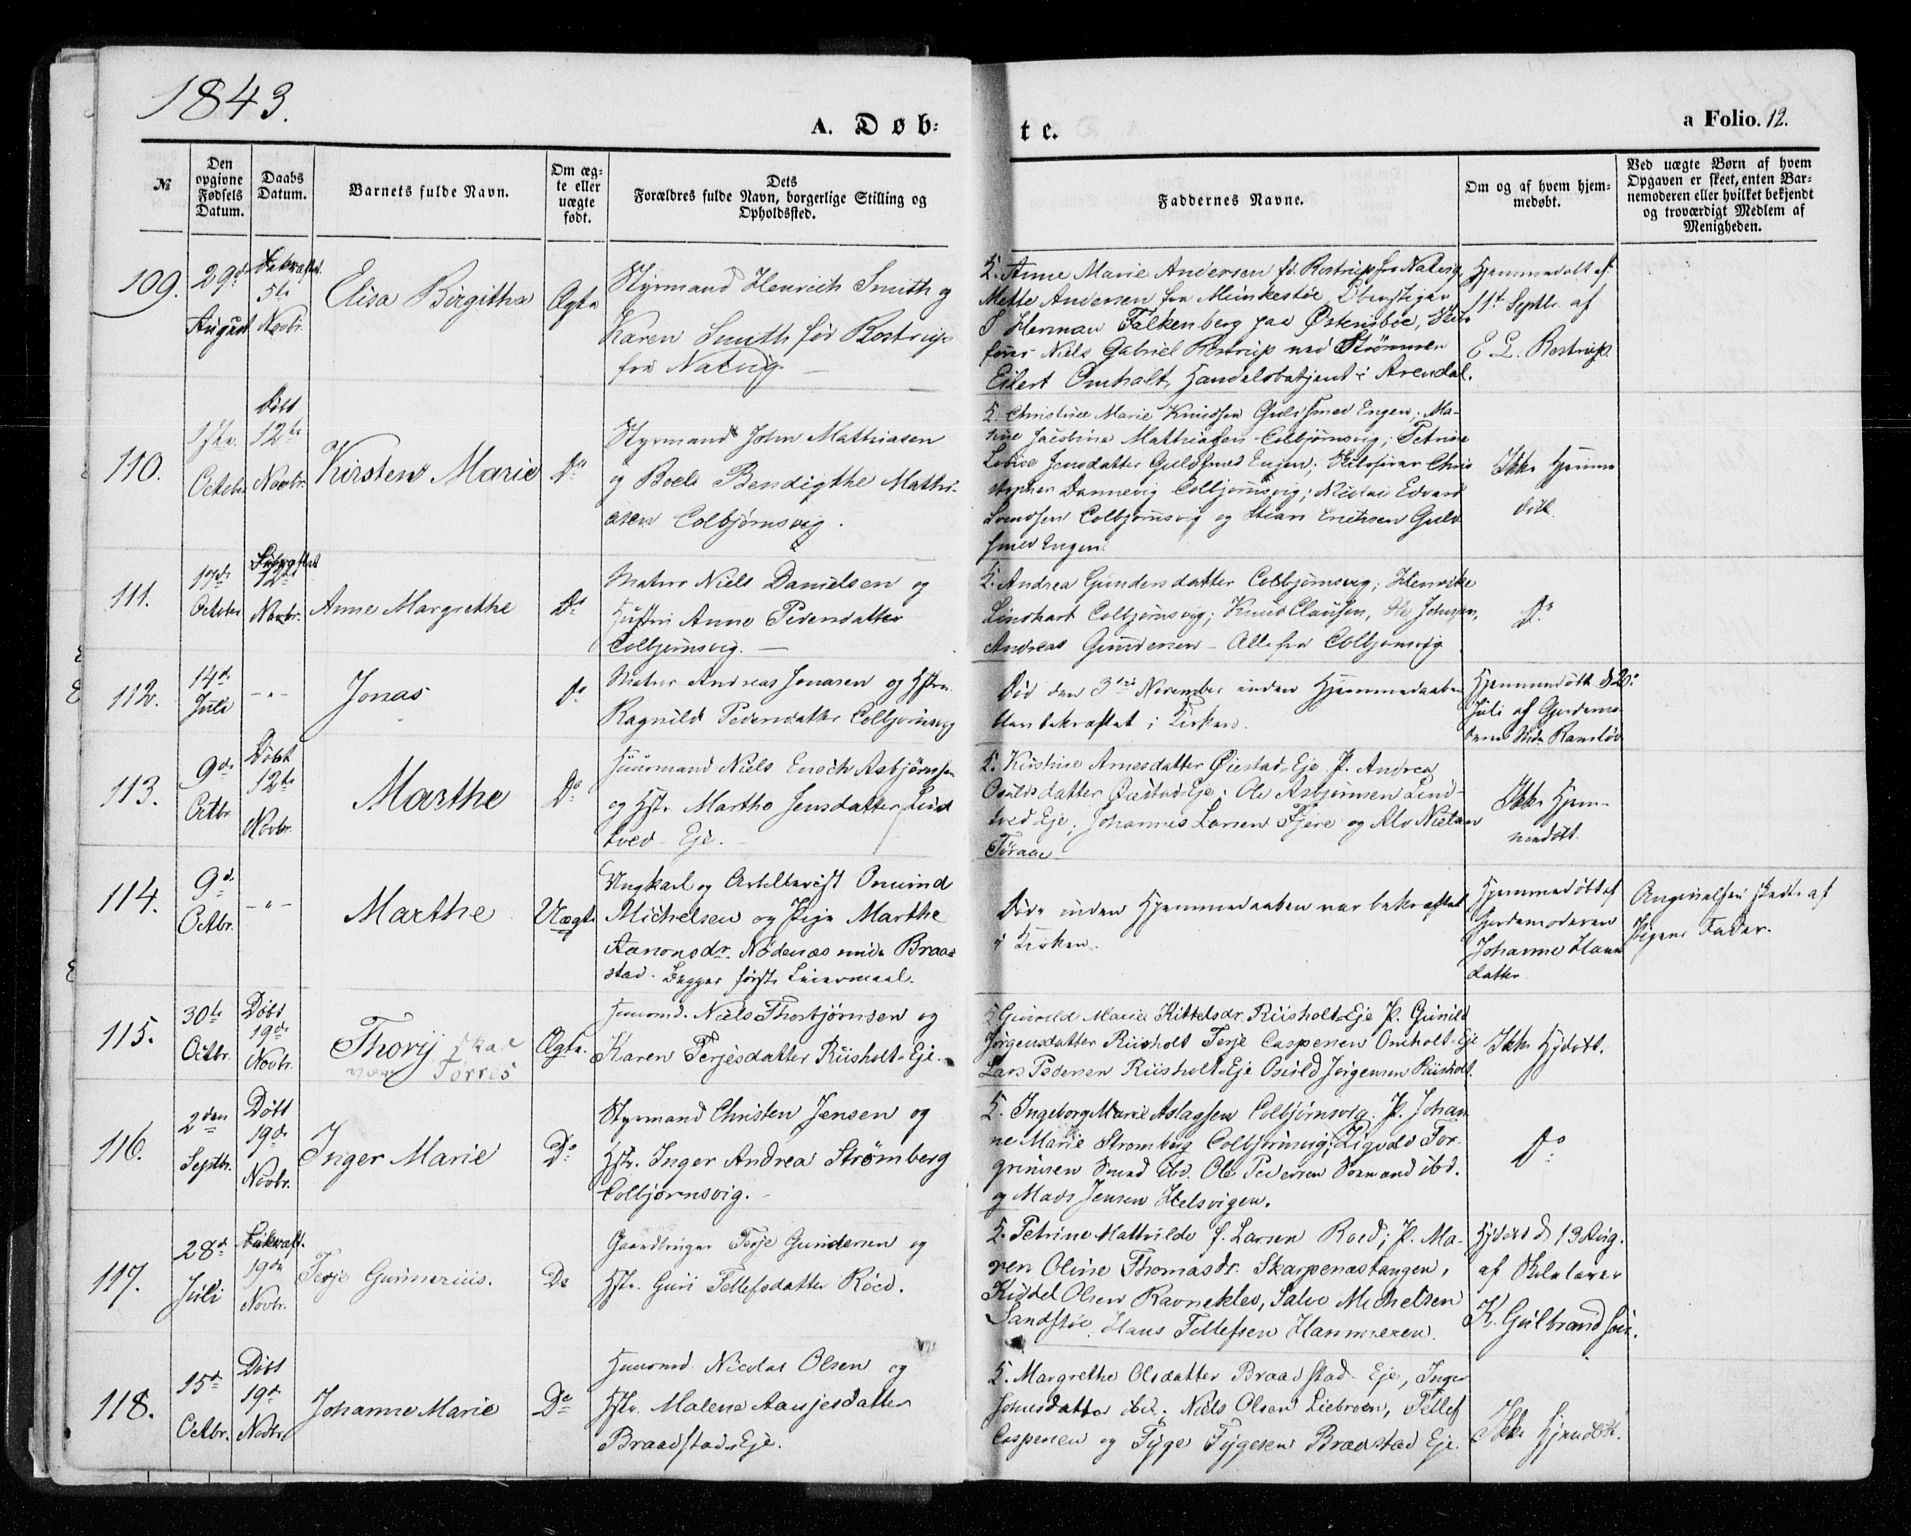 1843.
A. Døb-
te.
a Folio. 12.
№
Den opgivne Fødsels Datum.
Daabs Datum.
Barnets fulde Navn.
Om ægte eller uægte født.
Dets Forældres fulde Navn, borgerlige Stilling og Opholdssted.
Faddernes Navne.
Om og af hvem hjemmedøbt.
Ved uægte Børn af hvem Opgaven er skeet, enten Barnemoderen eller hvilket bekjendt og troværdigt Medlem af Menigheden.
109.
29de
August
5te
Novbr.
Elisa Birgitha
Ægte
Styrmand Henrich Smith og
Karen Smith før Rostrup
fra Natvig
Anne Marie Andersen fd. Rostrup fra Natvig,
Mette Andersen fra Munkestøe,
Herman Falkenberg paa Østensboe,
Niels Gabriel Rostrup ved Strømmen
Eilert Omholt, Handelsbetjent i Arendal.
Hjemmedøbt af
11te Septbr. af
E. L. Rostrup.
110.
17de
October
Døbt
12te
Novbr.
Kirsten Marie
Do
Styrmand John Mathiasen
og Boels Bendigthe Mathi-
asen Colbjørnsvig.
F. Christine Marie Knudsen Guldsmed Engen; Ma-
Jacobine Mathiasen Colbjørnsvig; Petrine
Lovise Jensdatter Guldsmed Engen; Chri
stopher Dannevig Colbjørnsvig; Nicolai Edvard
Svendsen Colbjørnsvig og Stian Erichsen Guld
smed Engen.
Ikke Hjemme
døbt
111.
17de
October
12te
Novbr.
Anne Margrethe
Do
Matros Niels Danielsen og
Hustru Anne Pedersdatter
Colbjørnsvig.
F. Andrea Gundersdatter Colbjørnsvig; Henrike
Linthart Colbjørnsvig; Knud Clausen, Ole Johnsen,
Andreas Gundersen - Alle fra Colbjørnsvig
Do
112.
14de
Juli
- " -
Jonas
Do
Matros Andreas Jonasen og Hstr.
Ragnild Pedersdatter Colbjørnsvig
Død den 3die November inden Hjemmedaaben
blev bekræftet i Kirken.
Hjemmedøbt d 20de
Juli af Gjordemo-
deren
113.
9de
Octbr.
Døbt
12te
Novbr.
Marthe
Do
Huusmand Niels Enoch Asbjørnsen
og Hstr. Marthe Jensdatter Lind
tved - Eje.
F. Kirstine Arnesdatter Øiestad-Eje. P. Andrea
Osuldsdatter Øiestad-Eje; Ole Asbjørnsen Lind-
tved-Eje; Johannes Larsen Fjære og Alv Nielsen
Ikke Hjem-
medøbt.
114.
9de
Octbr.
- " -
Marthe
Uægte
Ungkarl og Artillerist Omund
Michelsen og Pige Marthe
Aanonsdr. Nødenæs Braa
stad. Begges første Leiermaal.
Døde inden Hjemmedaaben var bekræftet
i Kirken.
Hjemmedøbt af
Gjordemoderen
Johanne Hans
datter
Angivelsen skede af
Pigens Fader.
115.
30te
Octbr.
Døbt
19de
Novbr.
Thorij skal
være Torres
Ægte.
Huusmd. Niels Thorbjørnsen og
Karen Terjesdatter Riisholt-Eje.
F. Gunild Marie Kittelsdr. Riisholt-Eje P. Gunild
Jørgensdatter Riisholt Terje Caspersen Omholt-Eje
Lars Pedersen Riisholt-Eje Osuld Jørgensen Riisholt.
Ikke Hjdøbt.
116.
2den
Septbr.
Døbt
19de
Novbr.
Inger Marie
Do
Styrmand Christen Jensen og
Hstr. Inger Andrea Strømberg
Colbjørnsvig.
F. Ingeborg Marie Aslagsen Colbjørnsvig. P. Johan
ne Marie Strømberg Colbjørnsvig; Sigvald Tor-
grimsen Smed ibd. Ole Pedersen Sømand ibd.
og Mads Jensen Helsvigen.
Do
117.
28de
Juli
Bekræft.
19de
Novbr.
Terje Gunnerius.
Do
Gaardbruger Terje Gundersen og
Hstr. Guri Tellefsdatter Røed.
F. Petrine Mathilde f. Larsen Roed; P. Ma-
ren Oline Thomasdr. Skarpenæstangen,
Kiddel Olsen Ravneklev, Salve Michelsen
Sandstøe, Hans Tellefsen Hammeren.
Hjdøbt d 13 Aug.
af Skolelærer
K. Gulbrandsen.
118.
15de
Octbr.
Døbt
19de
Novbr.
Johanne Marie
Do
Huusmd. Nicolai Olsen og
Hstr. Malene Aasjesdatter
Braadstad-Eje.
F. Margrethe Olsdatter Braadstad-Eje, Inger
Johnsdatter ibd., Niels Olsen Liebroen, Tellef
Caspersen og Tyge Tygesen Braastad Eje.
Ikke Hjemdøbt.